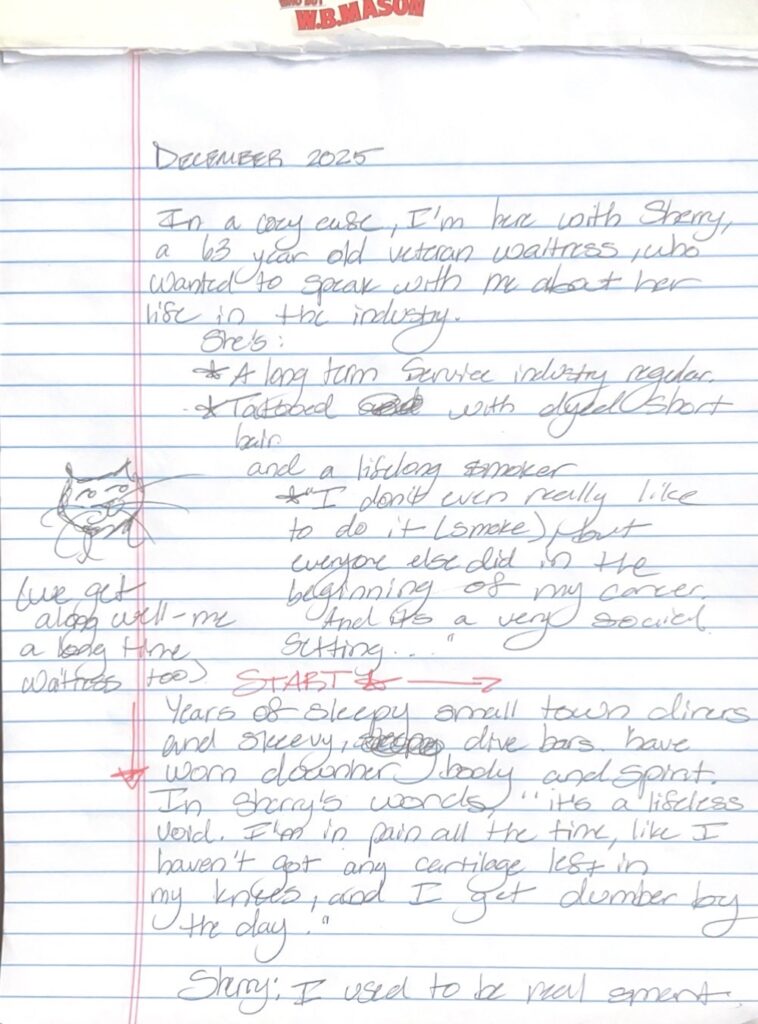 WHO BUT
W.B.MASON
DECEMBER 2025
In a cozy cafe, I'm here with Sherry,
a 63 year old veteran waitress, who
wanted to speak with me about her
life in the industry.
She's:
* A long term Service industry regular.
* Tattooed with dyed short
hair
and a lifelong smoker
* "I don't even really like
to do it (smoke), but
everyone else did in the
beginning of my career.
And it's a very social
setting..."
(we get
along well-me
a long time
waitress too)
START * →
Years of sleepy small town diners
and sleevy, dive bars have
worn down her body and spirit.
In Sherry's words, "it's a lifeless
void. I'm in pain all the time, like I
haven't got any cartilage left in
my knees, and I get dumber by
the day."
Sherry: I used to be real smart.